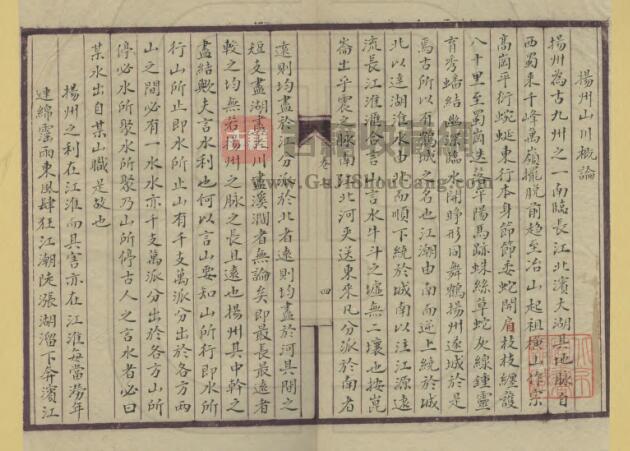 揚州山川概論
揚州為古九州之一南臨長江北濱大湖其地脈自
西蜀來千峰萬嶺擺脫前趨至冶山起祖橫山作宗
高崗平衍蜿蜒東行本身節節委蛇開肩枝枝纏護
八十里至蜀崗迭落平陽馬跡蛛絲草蛇灰線鍾靈
育秀蟠結幽深臨水開睜形同舞鶴揚州遂城於是
焉古所以有鶴城之名也江湖由南而逆上繞於城
北以達湖淮水由北而順下繞於城南以注江源遠
流長江淮滙合言山言水牛斗之墟無二壤也按崑
崙出乎震之脈南江北河夾送東來凡分派於南者
卷一
四
遠則均盡於江分派於北者遠則均盡於河其間之
短支盡湖盡川盡溪澗者無論矣即最長最遠者
較之均無若揚州之脈之長且遠也揚州其中幹之
盡結歟夫言水利也何以言山要知山所行即水所
行山所止即水所止山有千支萬派分出於各方兩
山之間必有一水水亦千支萬派分出於各方山所
停必水所聚水所聚乃山所停古人之言水者必曰
某水出自某山職是故也
揚州之利在江淮而其害亦在江淮每當潦年
連綿霪雨東風肆狂江潮陡漲湖溜下奔濱江
www.GuJiShouCang.com